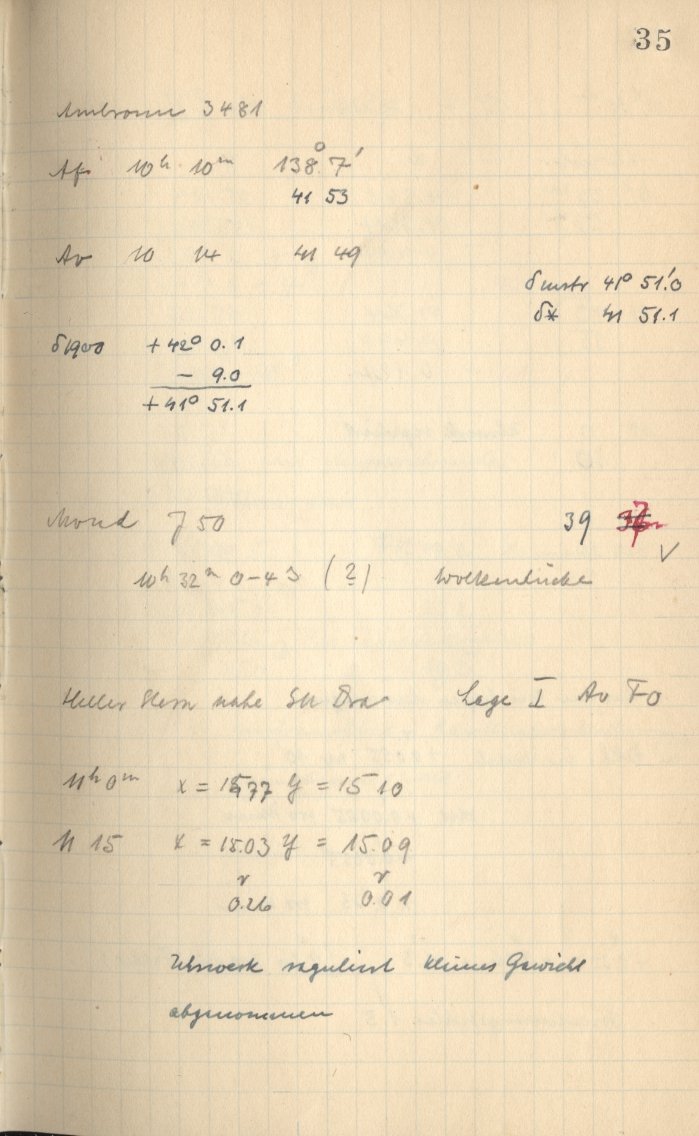 35
Ambronn 3481
Af 10h 10m 138° 7'
41 53
Av 10 14 41 49
δ instr 41° 51.'0
δ* 41 51.1
δ1900 + 42° 0.1
− 9.0
+ 41° 51.1
Mond J 50 39
10h 32m 0–43 (?) Wolkenlücke
Heller Stern nahe SU Dra Lage I Av Fo
11h 0m x = 15 77 y = 15 10
11 15 x = 15.03 y = 15.09
r r
0.26 0.01
Uhrwerk reguliert kleines Gewicht
abgenommen